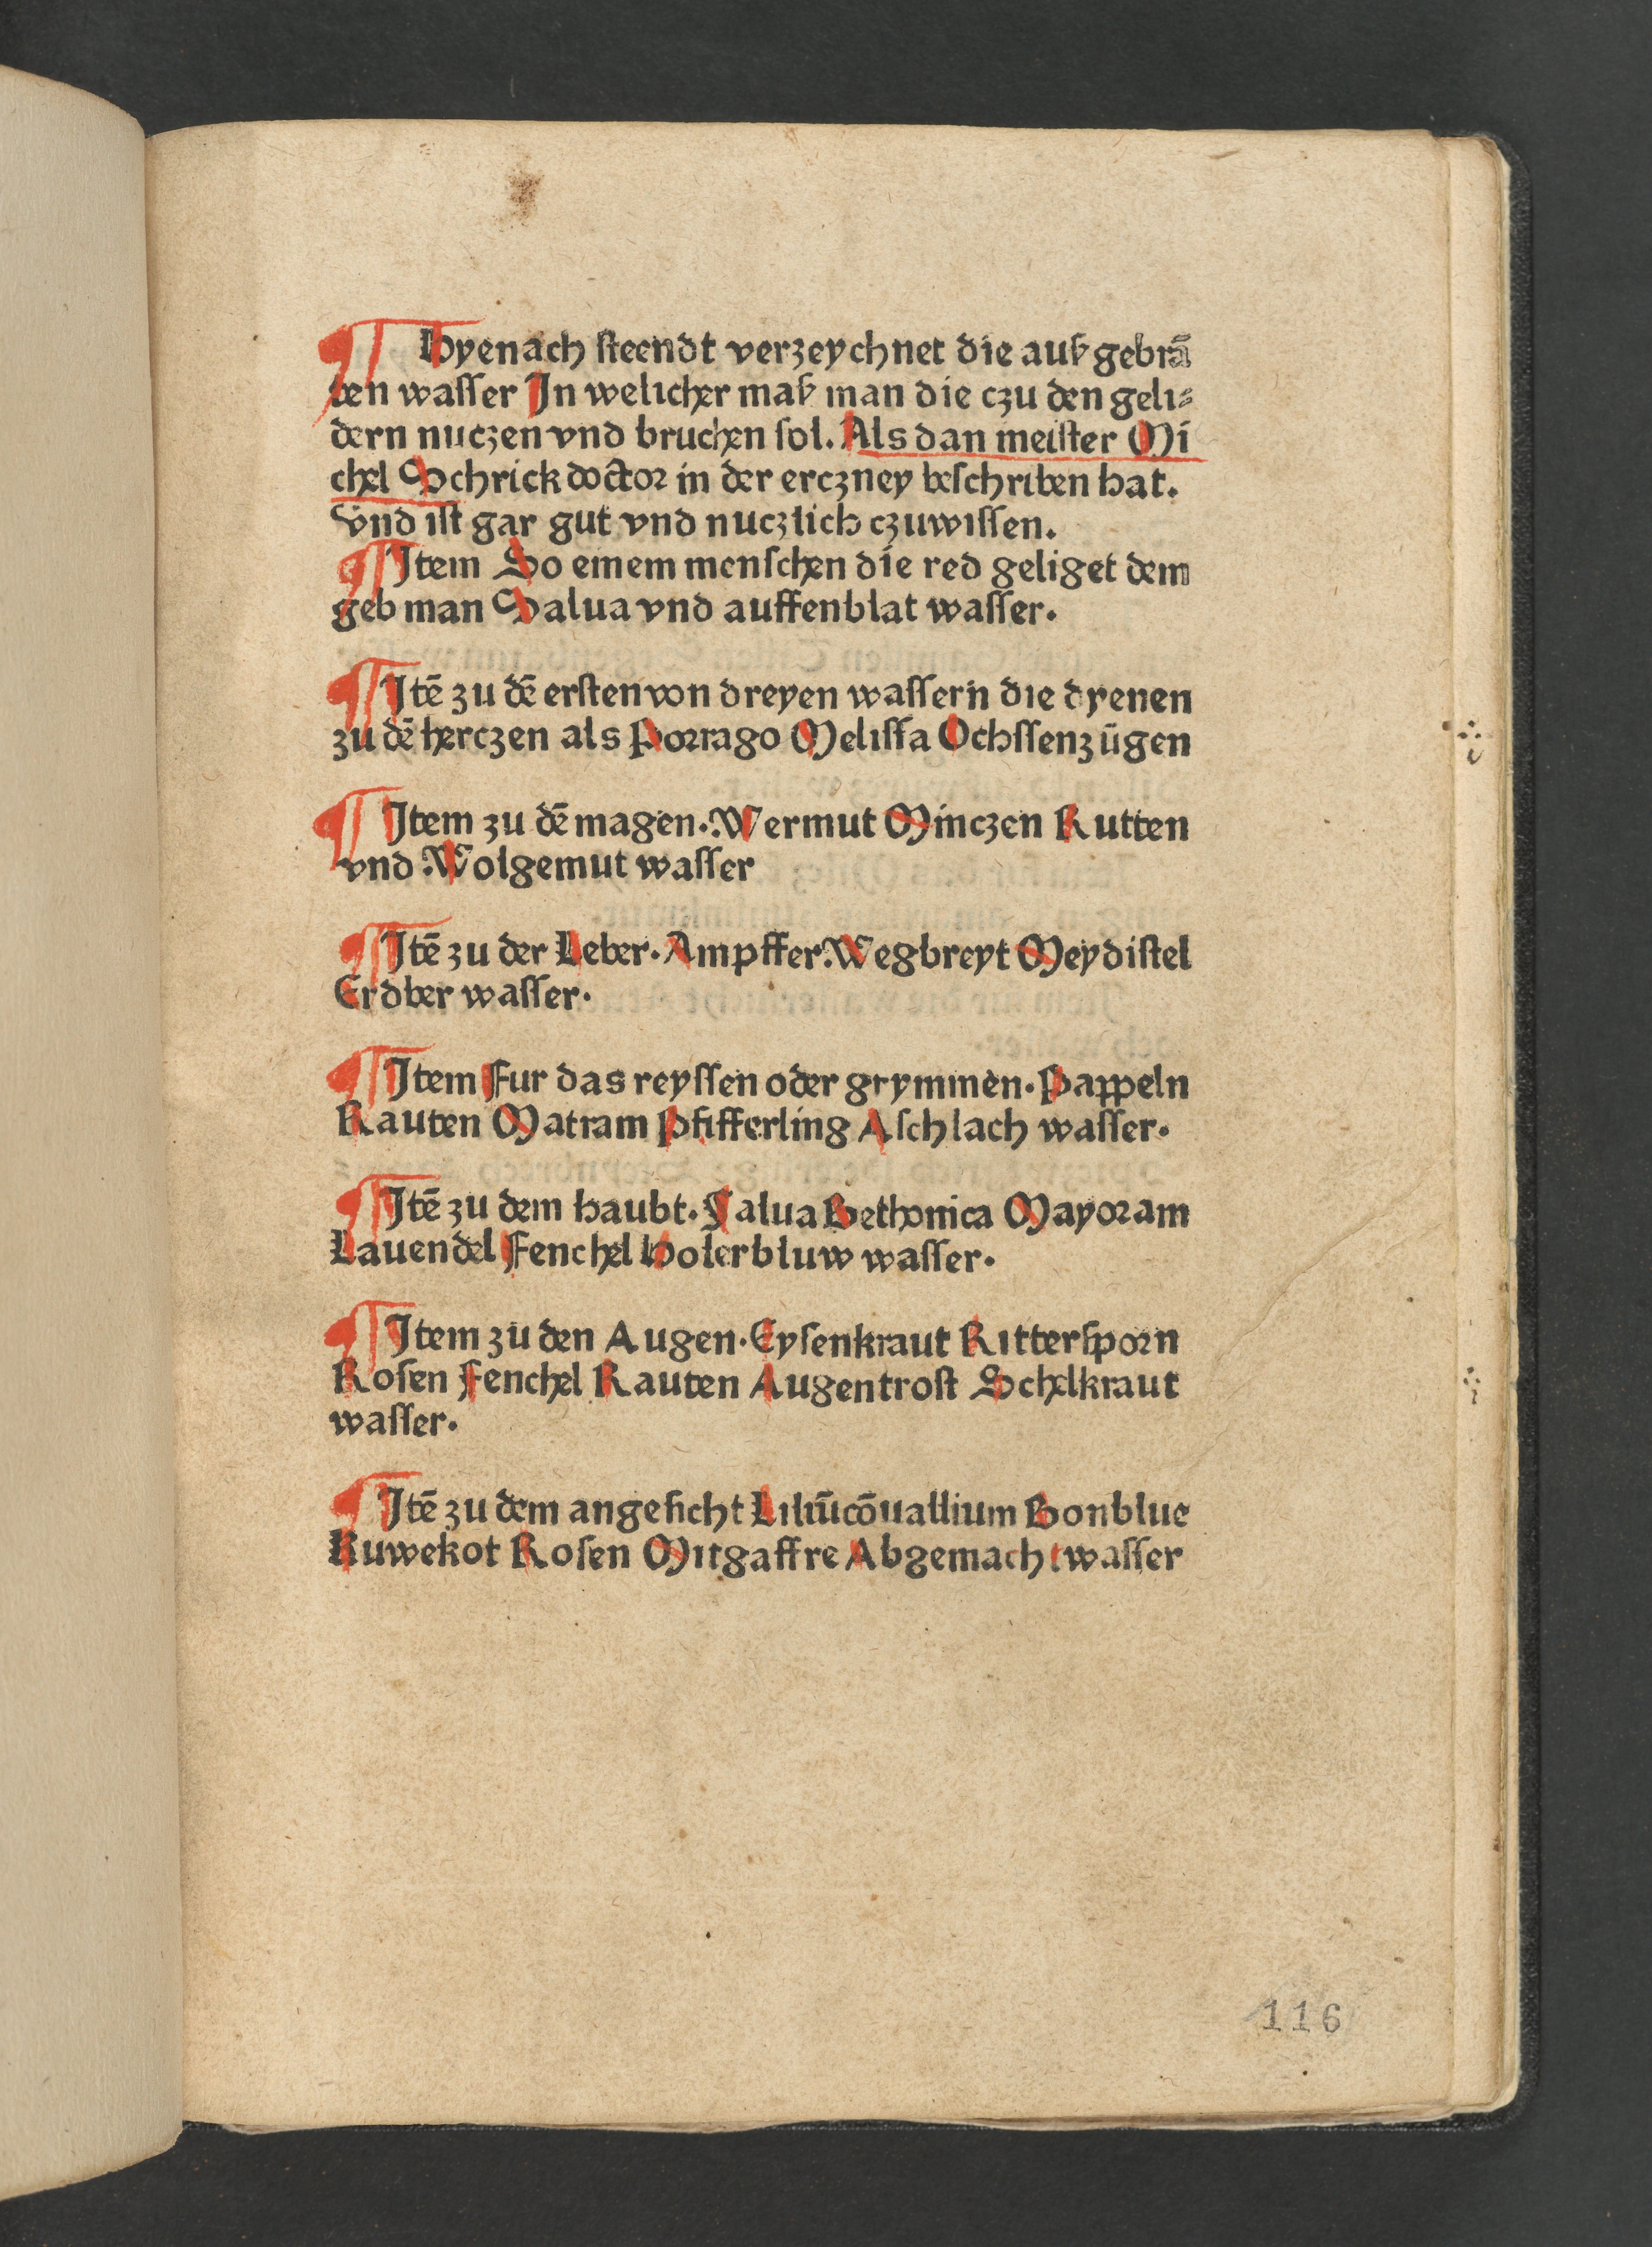 ¶ Hyenach steendt verzeychnet die auß gebrā
ten wasser Jn welicher maß man die czu den geli⸗
dern nuczen vnd bruchen sol. Als dan meister Mi
chel Schrick doctor in der erczney beschriben hat.
vnd ist gar gut vnd nuczlich czuwissen.
¶ Jtem So einem menschen die red geliget dem
geb man Salua vnd auffenblat wasser.
¶ Jtē zu dē ersten von dreyen wassern die dyenen
zu dē herczen als Porrago Melissa Ochssenzūgen
¶ Jtem zu dē magen. Wermut Minczen Rutten
vnd Wolgemut wasser
¶ Jtē zu der Leber. Ampffer. Wegbreyt Meydistel
Erdber wasser.
¶ Jtem Fur das reyssen oder grymmen. Pappeln
Rauten Matram Pfifferling Aschlach wasser.
¶ Jtē zu dem haubt. Salua Bethonica Mayoram
Lauendel Fenchel Holerbluw wasser.
¶ Jtem zu den Augen. Eysenkraut Rittersporn
Rosen Fenchel Rauten Augentrost Schelkraut
wasser.
¶ Jtē zu dem angesicht Liliūcōuallium Bonblue
Kuwekot Rosen Mitgaffre Abgemacht wasser
116